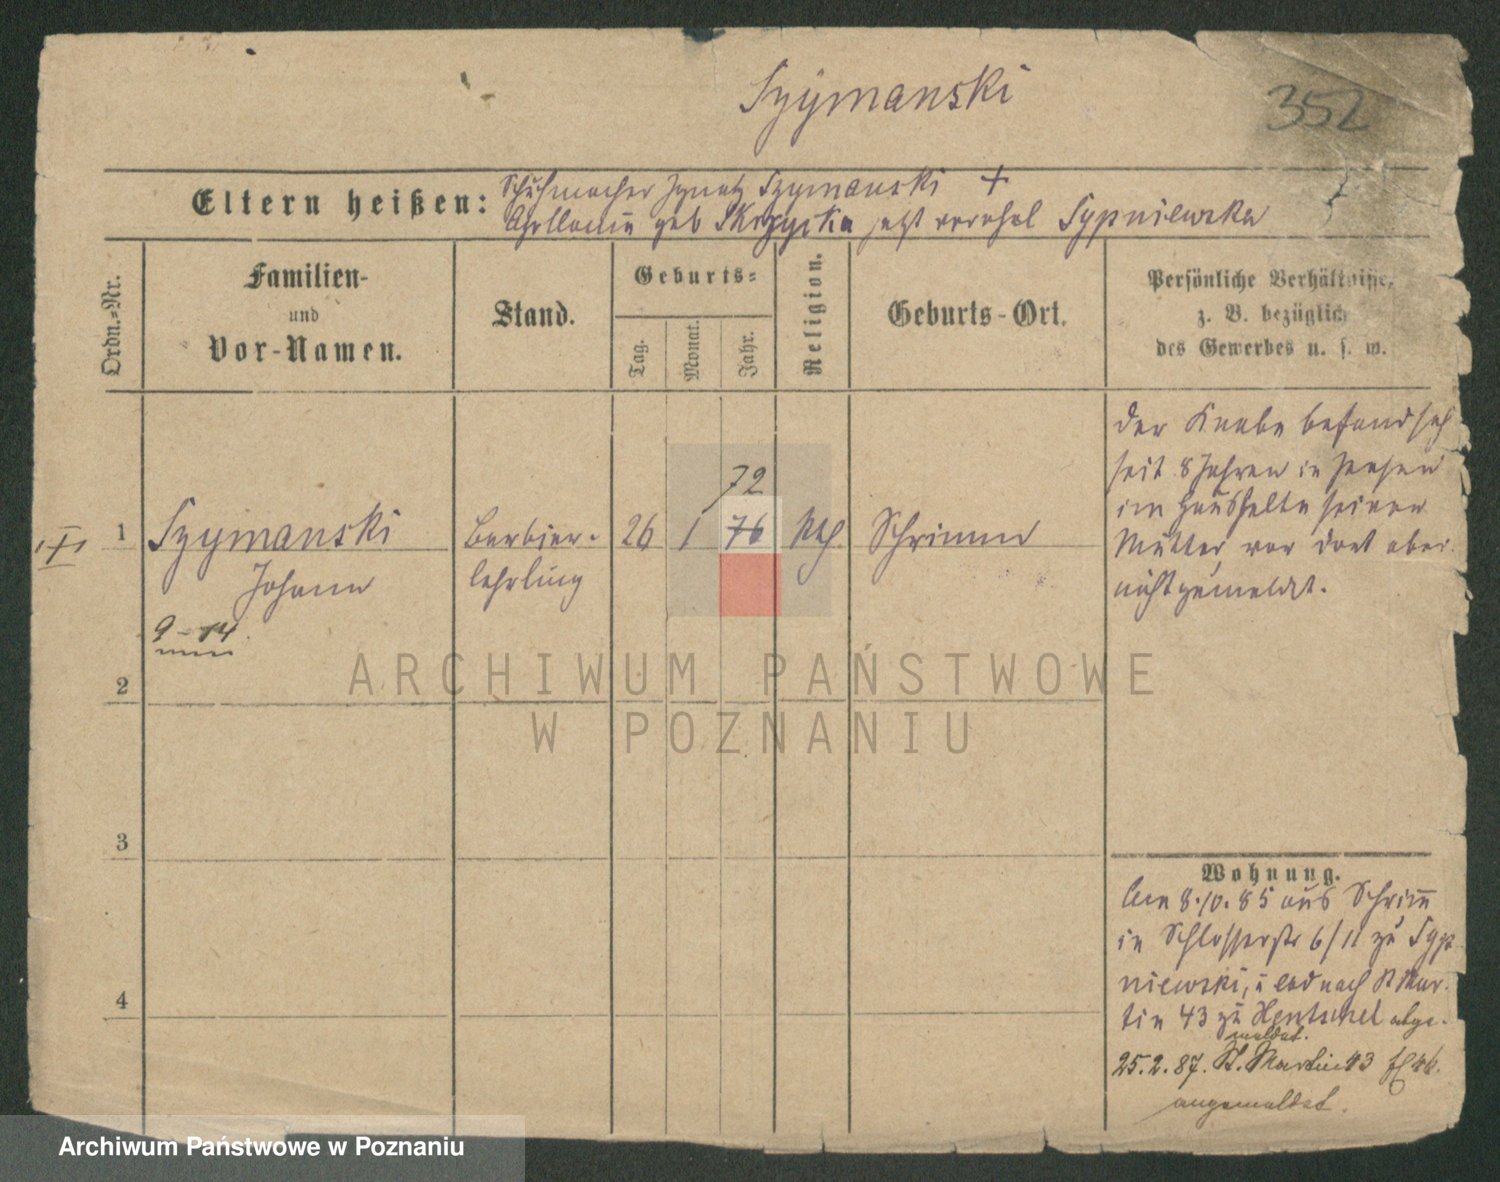 Szymanski
352
Eltern heißen:
Schuhmacher Ignatz Szymanski +
geb Skrzycka jetzt verehel Sypniewska
Ordn.-Nr.
Familien-
und
Vor-Namen.
Stand.
Geburts-
Tag.
Monat.
Jahr.
Religion.
Geburts-Ort.
Persönliche Verhältnisse,
z. B. bezüglich
des Gewerbes u. s. w.
1
Szymanski
Johann
9-14
Barbier-
lehrling
26
1
72
76
Kth.
Schrimm
Der Knabe befand sich
seit 8 Jahren in Posen
im Haushalte seiner
Mutter war dort aber
nicht gemeldet.
2
3
4
Wohnung.
Am 8.10.85 aus Schrim̄
in Schlosserstr 6/II zu Syp
niewski, u nach St Mar-
tin 43 zu Hentschel abge-
meldet.
25.2.87. St. Martin 43
angemeldet.
ARCHIWUM PAŃSTWOWE
W POZNANIU
Archiwum Państwowe w Poznaniu